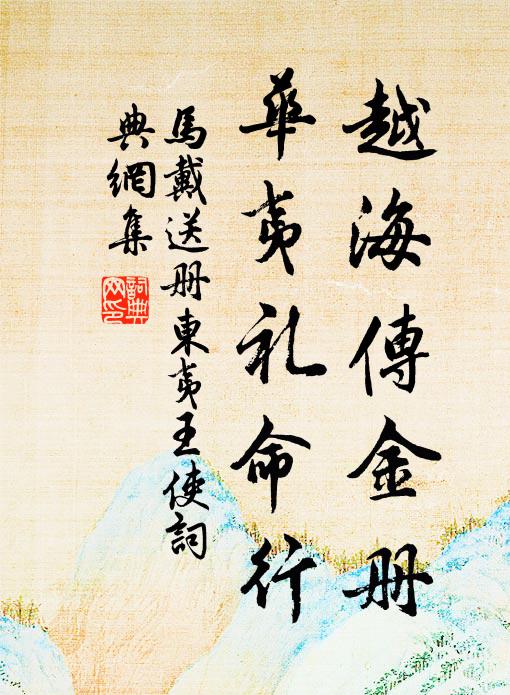 越海傳金册
華夷礼命行
馬戴送册東夷王使詞
典網集
詞典
网印